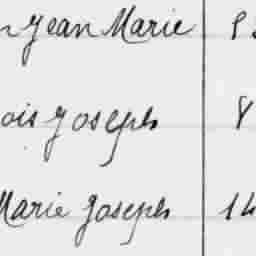 n Jean Marie
ois Joseph 8
Marie Joseph 14